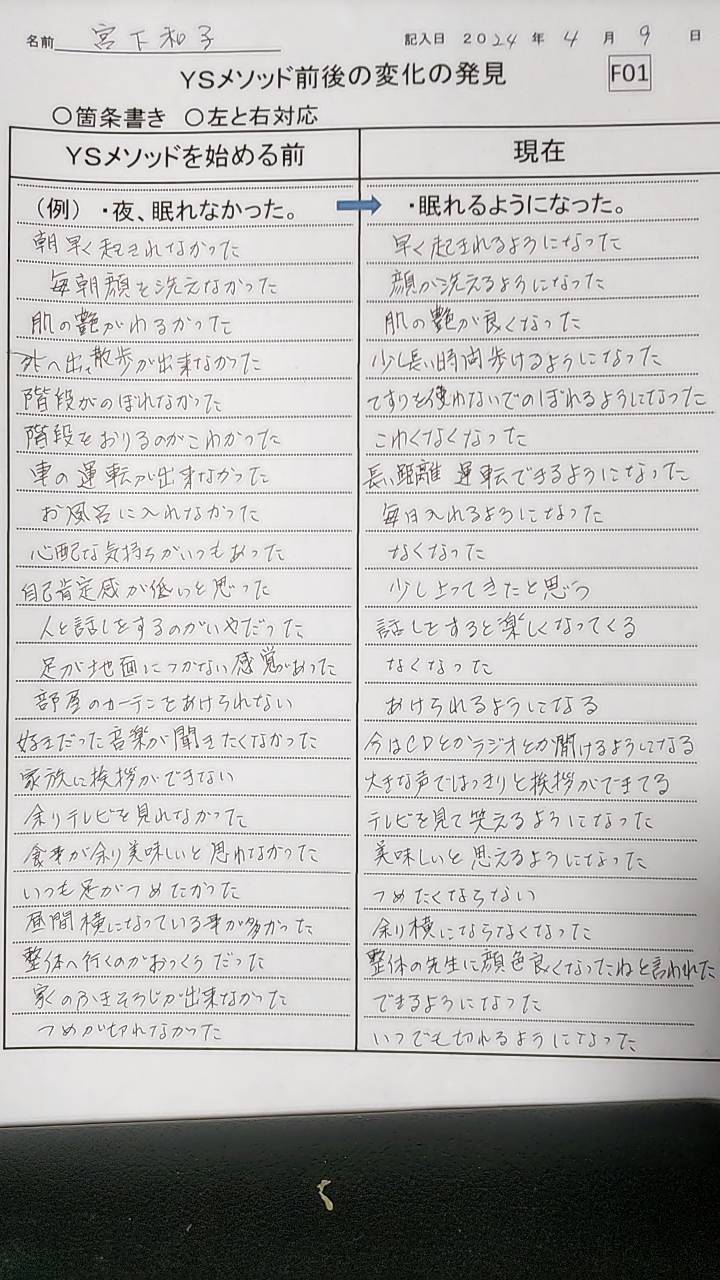 名前 宮下和子 記入日 2024年 4月 9日
YSメソッド前後の変化の発見 F01
○箇条書き ○左と右対応
YSメソッドを始める前 現在
(例) ・夜、眠れなかった。 ・眠れるようになった。
朝早く起きれなかった 早く起きれるようになった
毎朝顔を洗えなかった 顔が洗えるようになった
肌の艶がわるかった 肌の艶が良くなった
外へ出て散歩が出来なかった 少し長い時間歩けるようになった
階段がのぼれなかった てすりを使わないでのぼれるようになった
階段をおりるのがこわかった こわくなくなった
車の運転が出来なかった 長い距離 運転できるようになった
お風呂に入れなかった 毎日入れるようになった
心配な気持ちがいつもあった なくなった
自己肯定感が低いと思った 少し上ってきたと思う
人と話しをするのがいやだった 話しをすると楽しくなってくる
足が地面につかない感覚があった なくなった
部屋のカーテンをあけられない あけられるようになる
好きだった音楽が聞きたくなかった 今はCDとかラジオとか聞けるようになる
家族に挨拶ができない 大きな声ではっきりと挨拶ができてる
余りテレビを見れなかった テレビを見て笑えるようになった
食事が余り美味しいと思わなかった 美味しいと思えるようになった
いつも足がつめたかった つめたくならない
昼間横になっている事が多かった 余り横にならなくなった
整体へ行くのがおっくうだった 整体の先生に顔色良くなったねと言われた
家のふきそうじが出来なかった できるようになった
つめが切れなかった いつでも切れるようになった